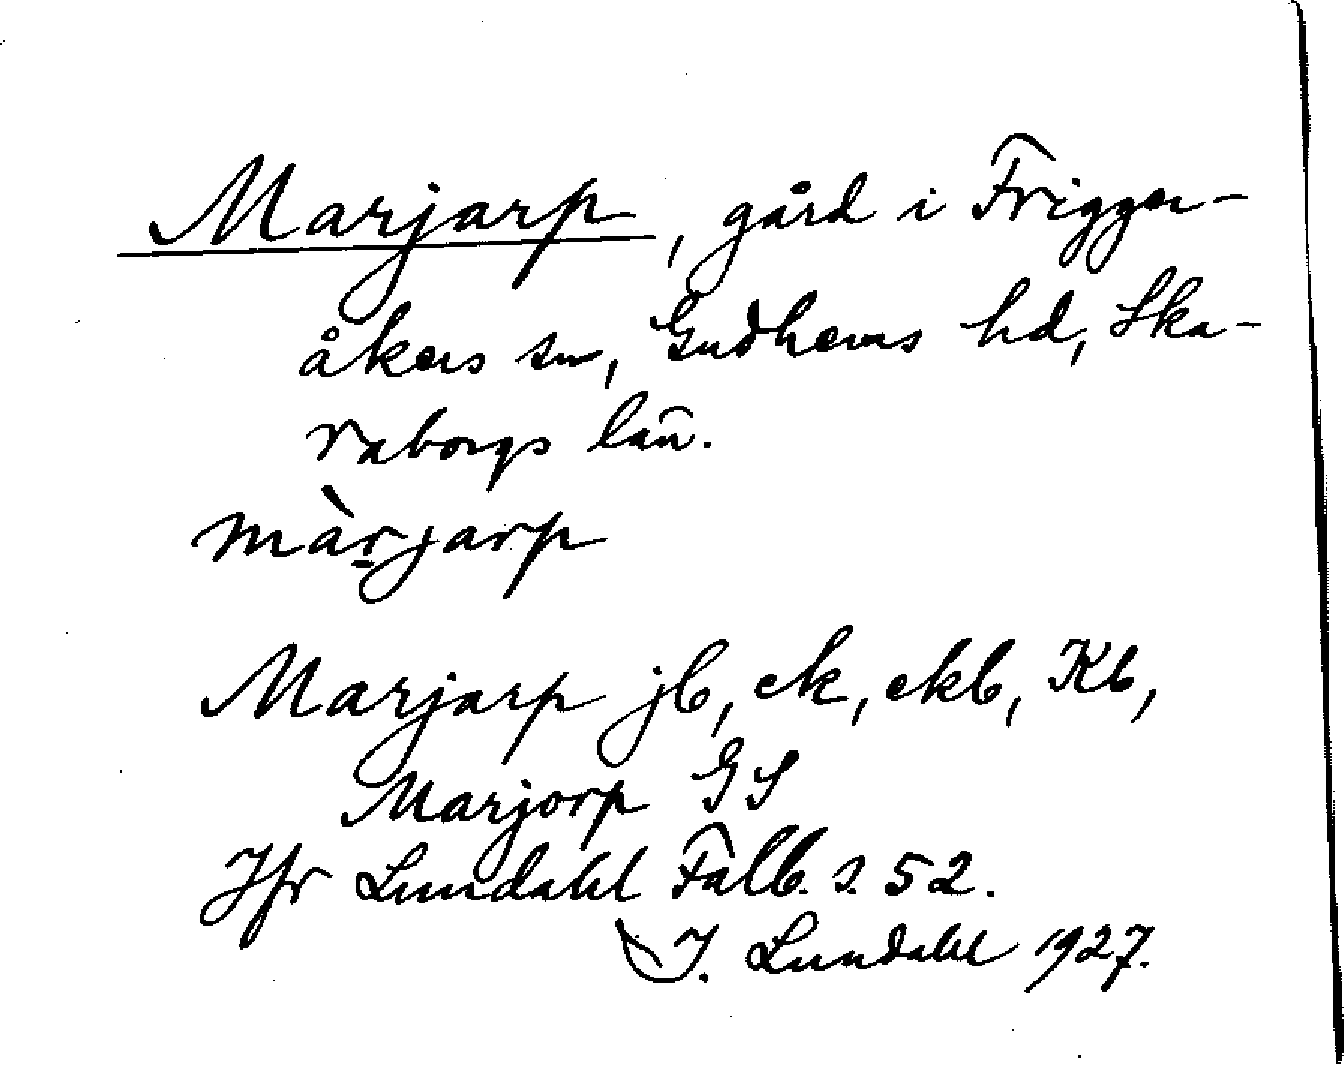 Marjarp, gård i Frigger-
åkers sn, Gudhems hd, Ska-
raborgs län.
màr̠jarp
Marjarp jb, ek, ekb, Kb,
Marjorp GS
Jfr Lundahl Falb. s. 52.
I. Lundahl 1927.